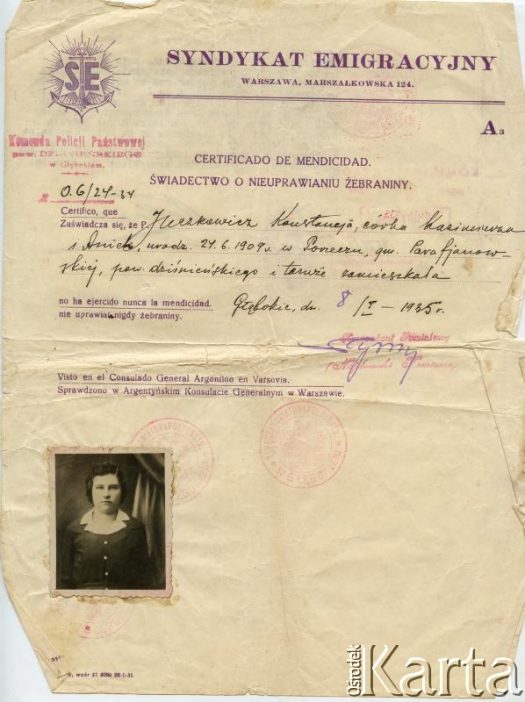 SYNDYKAT EMIGRACYJNY
WARSZAWA, MARSZAŁKOWSKA 124.
SE
A3
Komenda Policji Państwowej
pow.
w Głębokiem
CERTIFICADO DE MENDICIDAD.
ŚWIADECTWO O NIEUPRAWIANIU ŻEBRANINY.
06/24-34
Certifico, que
Zaświadcza się, że P. Konstancja, córka Kazimierza
i urodz. 24.6.1909 r. w gm.
pow. dziśnieńskiego i tamże zamieszkała
no ha ejercido nunca la mendicidad.
nie uprawiał nigdy żebraniny.
Głębokie, dn. 8/I-1935 r.
Visto en el Consulado General Argentino en Varsovia.
Sprawdzono w Argentyńskim Konsulacie Generalnym w Warszawie.
ośrodek
Karta